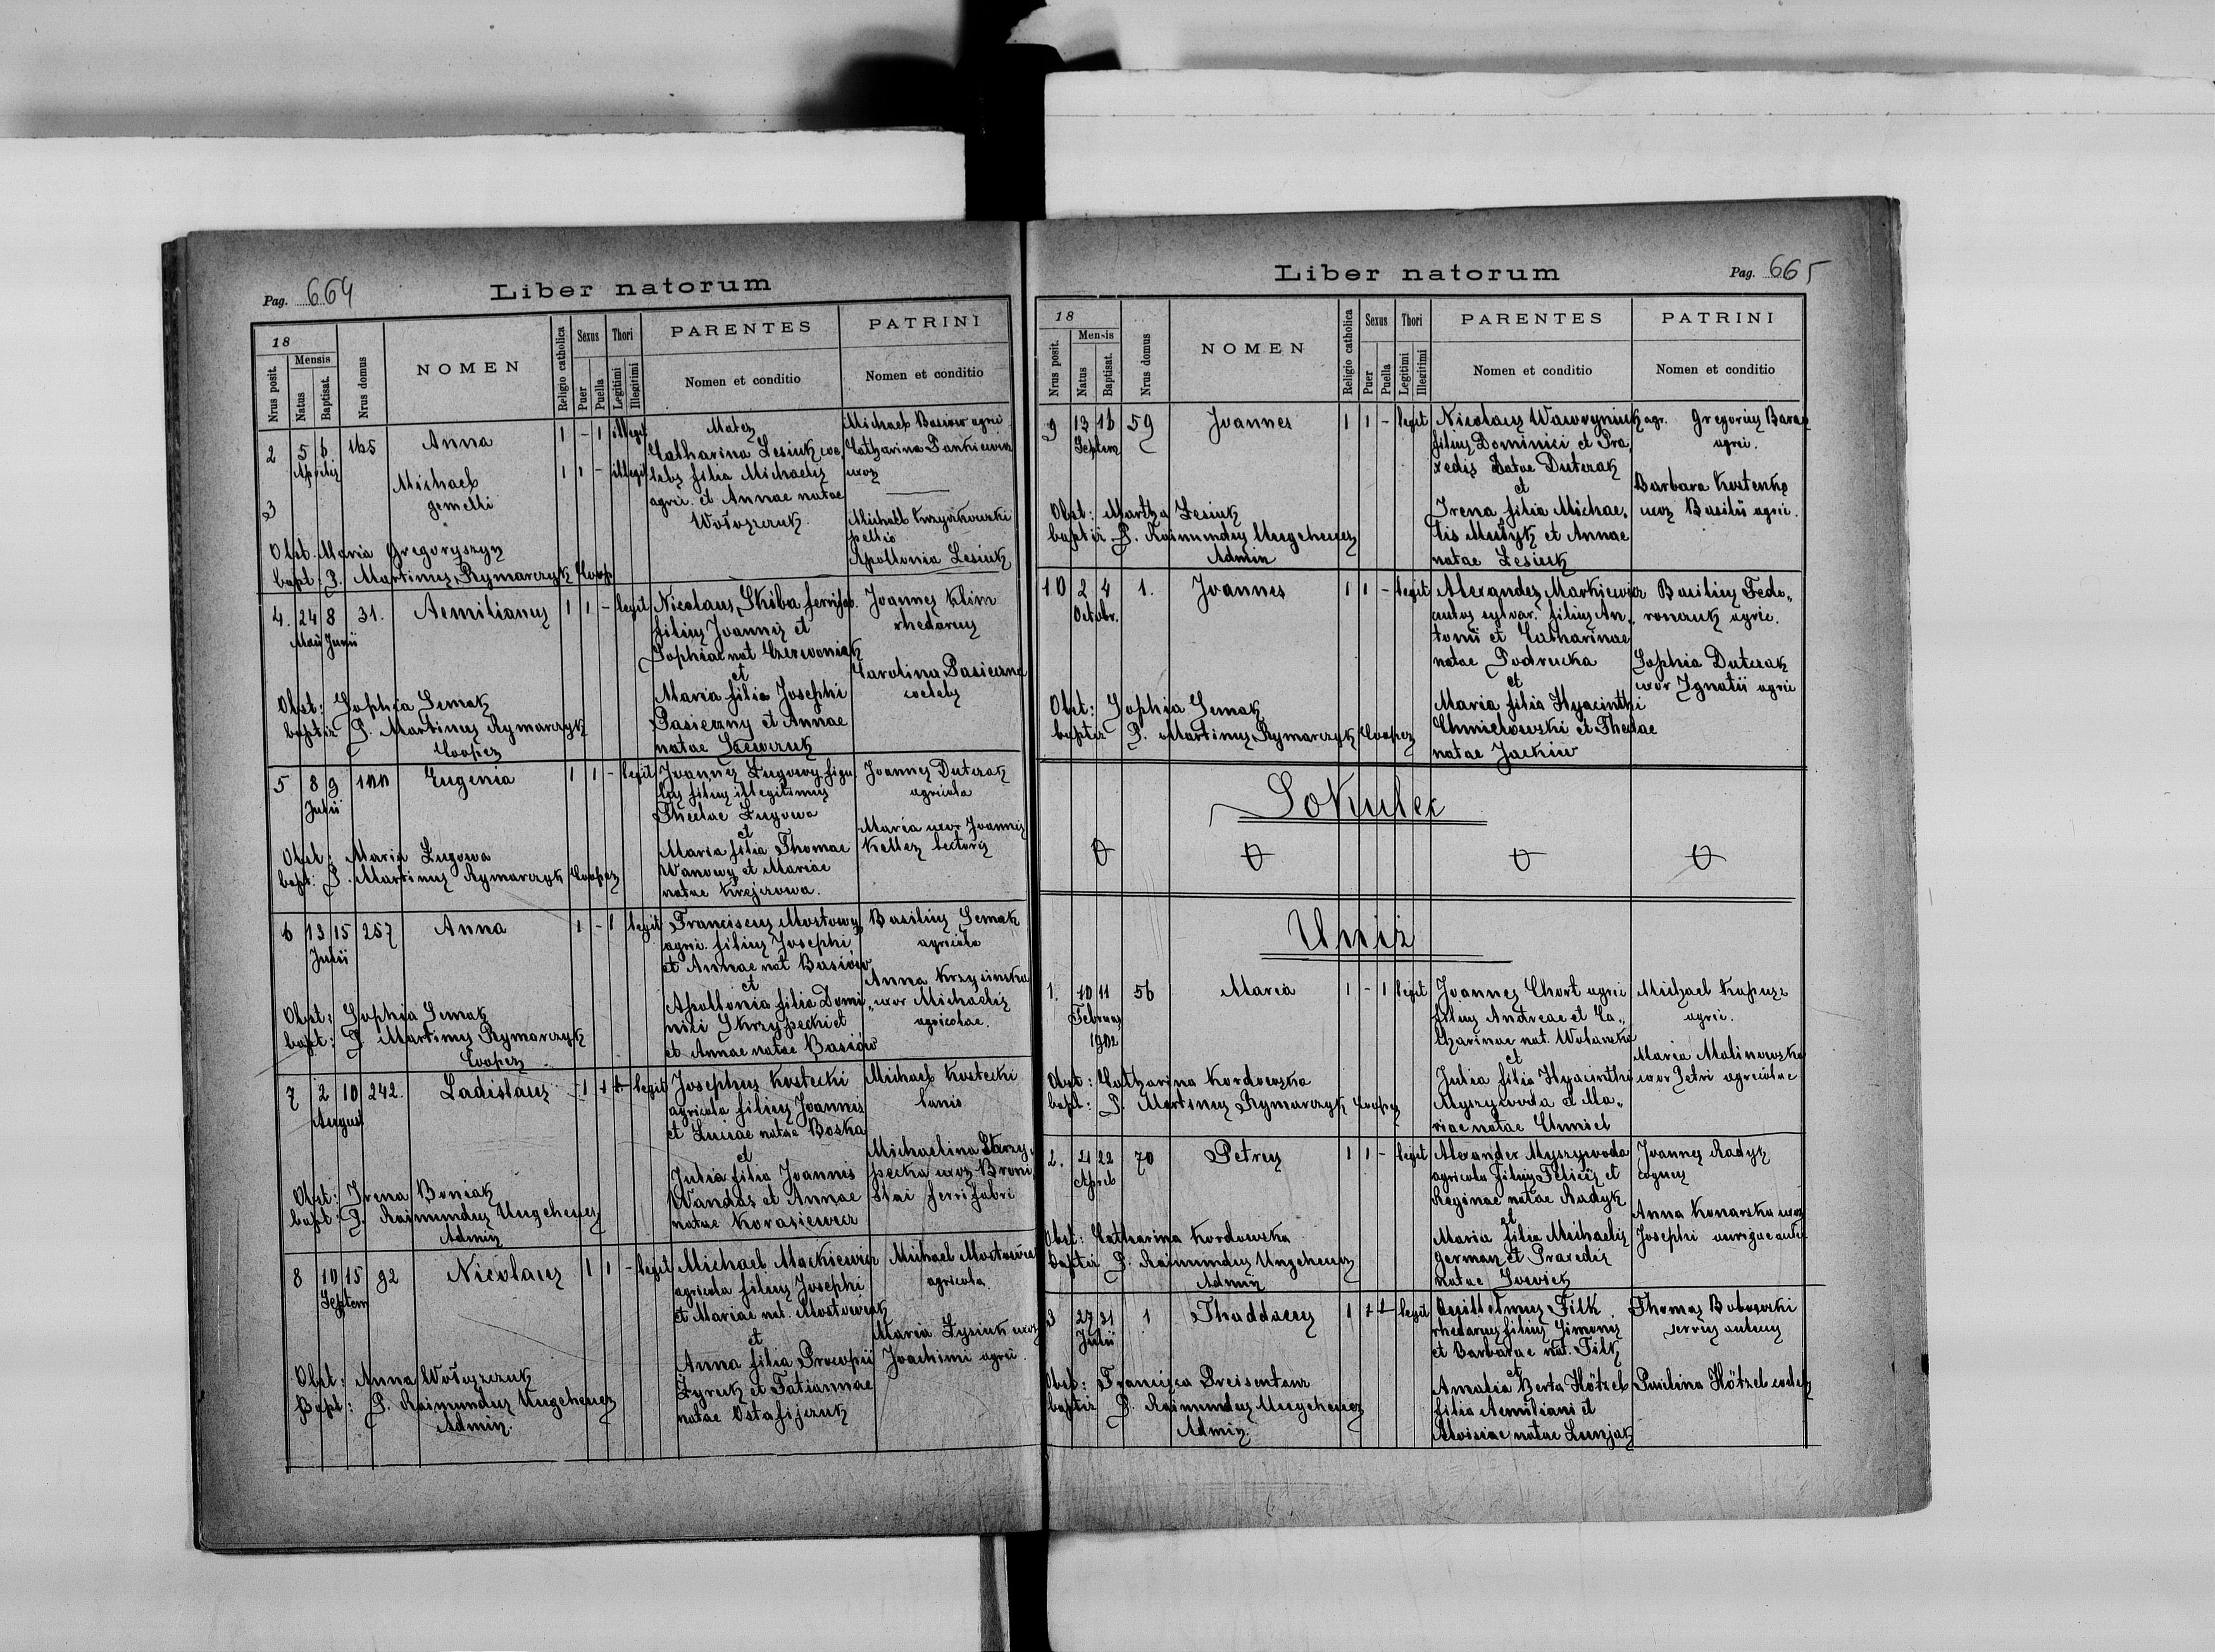 Pag. 664
Liber natorum
18
Nrus posit.
Mensis
Natus
Baptisat.
Nrus domus
NOMEN
Religio catholica
Sexus
Puer
Puella
Thori
Legitimi
Illegitimi
PARENTES
Nomen et conditio
PATRINI
Nomen et conditio
2 5 6 145 Anna 1 - 1 illegit
Aprilis
3 Michael 1 1 - illegit
gemelli
Mater
Catharina Lesiuk coe
lebs filia Michaelis
agric. et Annae natae
Wołoszczuk
Michael Basiów agri
Catharina Pankiewicz
uxor
Michael Krzyżkowski
pellio
Apollonia Lesiuk
Obst. Maria Gregoryszyn
bapt: P. Martinus Rymarczyk Cooper
4. 24 8 31. Aemilianus 1 1 - legit
Maii Junii
Nicolaus Skiba ferrifab.
filius Joannis et
Sophiae nat Czerwoniak
et
Maria filia Josephi
Pasieczny et Annae
natae Szewczuk
Joannes Klim
rhedarius
Carolina Pasieczna
coelebs
Obst: Sophia Semak
baptiz P. Martinus Rymarczyk
Cooper
5 8 9 Eugenia 1 1 - legit
Julii
Joannes Lugowy figu
lus filius illegitimus
Theclae Lugowa
et
Maria filia Thomae
Wanowy et Mariae
natae Krejczowa.
Joannes Dutczak
agricola
Maria uxor Joannis
Keller lectoris
Obst: Maria Lugowa
bapt: P. Martinus Rymarczyk Cooper
6 13 15 257 Anna 1 - 1 legit
Julii
Franciscus Mostowy
agric. filius Josephi
et Annae nat Basiów
et
Apollonia filia Domi
nici Skrzypecki et
et Annae natae Basiów
Basilius Semak
agricola
Anna Krzysinska
uxor Michaelis
agricolae.
Obst: Sophia Semak
bapt: P. Martinus Rymarczyk
Cooper
7 2 10 242. Ladislaus 1 1 1 legit
August
Josephus Kostecki
agricola filius Joannis
et Luisae natae Boska
et
Julia filia Joannis
Wandas et Annae
natae Korasiewicz
Michael Kostecki
lanio
Michaelina Skrzy
pecka uxor Broni
slai ferrifabri
Obst: Irena Boniak
bapt: P. Raimundus Ungeheuer
Admin
8 10 15 92 Nicolaus 1 1 - legit
Septem
Michael Mackiewicz
agricola filius Josephi
et Mariae nat. Mostowiak
et
Anna filia Procopii
Zyruk et Tatiannae
natae Ostafijczuk
Michael Mostowiak
agricola
Maria Lysiuk uxor
Joachimi agric.
Obst: Anna Wołoszczuk
Bapt: P. Raimundus Ungeheuer
Admin.
Pag. 665
Liber natorum
18
Nrus posit.
Mensis
Natus
Baptisat.
Nrus domus
NOMEN
Religio catholica
Sexus
Puer
Puella
Thori
Legitimi
Illegitimi
PARENTES
Nomen et conditio
PATRINI
Nomen et conditio
9 13 16 59 Joannes 1 1 - legit
Septem
Nicolaus Wawryniuk agr.
filius Dominici et Pra
xedis natae Dutczak
et
Irena filia Michae,
lis Mudyk et Annae
natae Lesiuk
Gregorius Baran
agric.
Barbara Kostenko
uxor Basilii agric.
Obst: Martha Lesiuk
baptiz P. Raimundus Ungeheuer
Admin
10 2 4 1. Joannes 1 1 - legit
Octobr.
Alexander Markiewicz
custos sylvar. filius An,
tonii et Catharinae
natae Podrucka
et
Maria filia Hyacinthi
Chmielowski et Theclae
natae Jackiw
Basilius Fedo,
ronczuk agric.
Sophia Dutczak
uxor Ignatii agric
Obst: Sophia Semak
baptiz P. Martinus Rymarczyk Cooper
Sokulec
Uniz
1. 10 11 56 Maria 1 - 1 legit
Februar
1902
Joannes Chort agric
filius Andreae et Ca,,
tharinae nat. Wolanska
et
Julia filia Hyacinthi
Myszywoda et Ma,,
riae natae Chmiel
Michael Kapusz
agric.
Maria Malinowska
uxor Petri agricolae
Obst: Catharina Kordowska
bapt: P. Martinus Rymarczyk Cooper
2. 21 22 70 Petrus 1 1 - legit
April
Alexander Myszywoda
agricola filius Felicis et
Reginae natae Radyk
et
Maria filia Michaelis
German et Praxedis
natae Jowick
Joannes Radyk
coquus
Anna Konarska uxor
Josephi aurigae aulic
Obst: Catharina Kordowska
baptiz P. Raimundus Ungeheuer
Admin
3 27 31 1 Thaddaeus 1 1 1 legit
Julii
Guillelmus Filk
rhedarius filius Simonis
et Barbarae nat. Filk
et
Amalia Berta Hötzel
filia Aemiliani et
Aloisiae natae Lunjak
Thomas Bobowski
servus aulicus
Paulina Hötzel coelebs
Obst: Francisca Dreisentanz
baptiz P. Raimundus Ungeheuer
Admin.